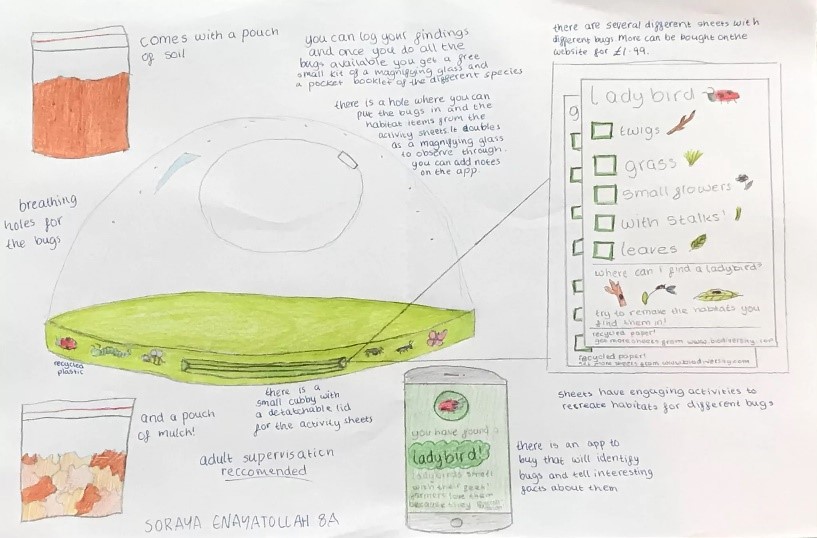 comes with a pouch
of soil
you can log your findings
and once you do all the
bugs available you get a free
small kit of a magnifying glass and
a pocket booklet of the different species
there is a hole where you can
put the bugs in and the
habitat items from the
activity sheets. It doubles
as a magnifying glass
to observe through.
you can add notes
on the app.
there are several different sheets with
different bugs. More can be bought on the
website for £1.99.
breathing
holes for
the bugs
g
ladybird
twigs
grass
small flowers
with stalks!
leaves
where can I find a ladybird?
try to remake the habitats you
find them in!
recycled paper!
get more sheets from www.biodiversity.com
recycled paper!
more sheets from www.biodiversity.com
recycled
plastic
there is a
small cubby with
a detatchable lid
for the activity sheets
and a pouch
of mulch!
adult supervisation
reccomended
you have found a
ladybird!
ladybirds smell
with their feet!
farmers love them
because they
sheets have engaging activities to
recreate habitats for different bugs
there is an app to
bug that will identify
bugs and tell interesting
facts about them
SORAYA ENAYATOLLAH 8A